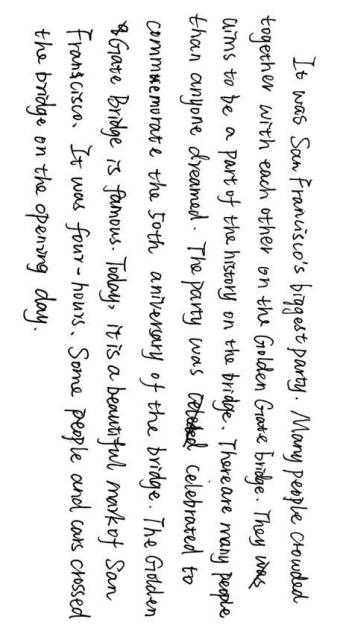 It was San Francisco's biggest party. Many people crowded
together with each other on the Golden Grate bridge. They was
aims to be a part of the history on the bridge. There are many people
than anyone dreamed. The party was celebrated to
commemorate the 50th aniversary of the bridge. The Golden
Gate Bridge is famous. Today, it is a beautiful mark of San
Francisco. It was four-hours. Some people and cars crossed
the bridge on the opening day.